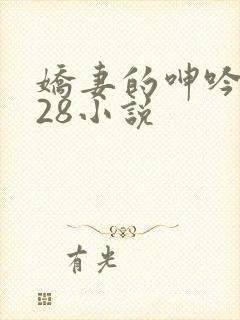 嬌妻的呻吟
28小說
有光